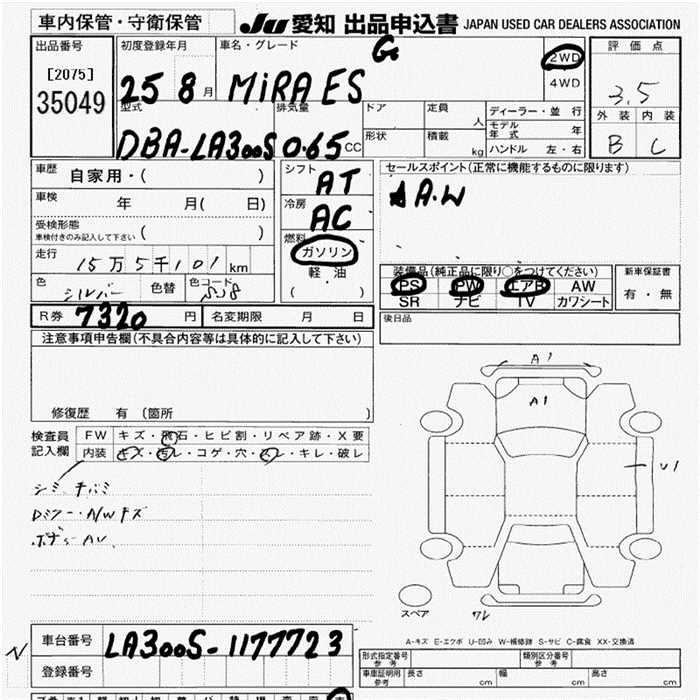 車内保管・守衛保管
JU 愛知 出品申込書 JAPAN USED CAR DEALERS ASSOCIATION
出品番号
[2075]
35049
初度登録年月
25 8 月
車名・グレード
MiRA ES G
2WD
4WD
評価点
3.5
外装 内装
B C
型式
DBA-LA300S
排気量
0.65 CC
ドア
定員
人
形状
積載
kg
ディーラー・並行
モデル年式 年
ハンドル 左・右
車歴
自家用・( )
車検
年 月( 日)
受検形態
車検付きのみ記入して下さい ( )
走行
15万5千101 km
色
シルバー
色替
色コード
S28
シフト
AT
冷房
AC
燃料
ガソリン
軽・油
( )
セールスポイント(正常に機能するものに限ります)
A.W
装備品(純正品に限り○をつけてください)
PS PW エアB AW
SR ナビ TV カワシート
新車保証書
有・無
R券 7320 円
名変期限 月 日
後日品
注意事項申告欄(不具合内容等は具体的に記入して下さい)
修復歴 有 (箇所 )
検査員
記入欄
FW キズ・飛石・ヒビ割・リペア跡・X要
内装 キズ・汚レ・コゲ・穴・スレ・キレ・破レ
シミ
A1
A1
U1
スペア
ワレ
A-キズ E-エクボ U-凹み W-補修跡 S-サビ C-腐食 XX-交換済
車台番号
LA300S-1177723
登録番号
形式指定番号
参考
類別区分番号
参考
車庫証明用
参考
長さ
cm
幅
cm
高さ
cm